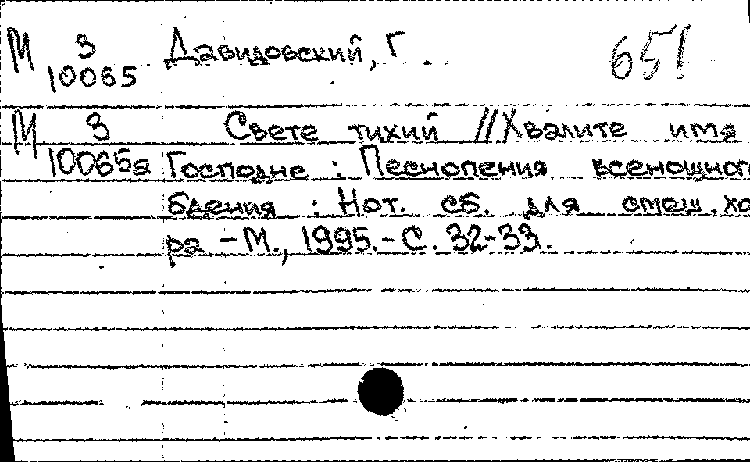 М З Давидовский, Г. 651
10065
М З Свете тихий // Хвалите имя
10065а Господне : Песнопения всенощног
бдения : Нот. сб. для смеш. хо
ра - М., 1995. - С. 32-33.